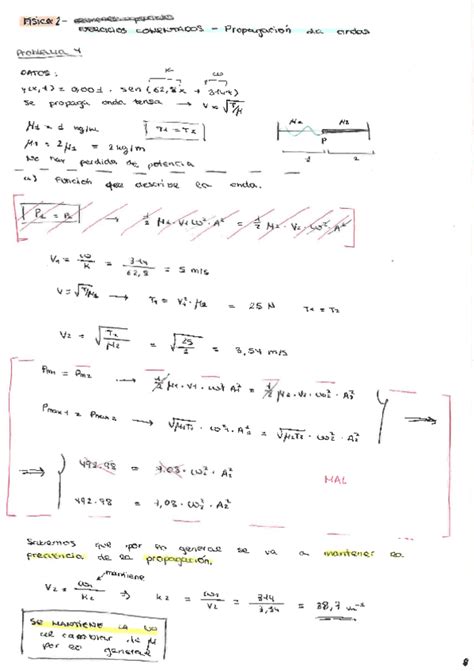 FISICA 2 -
EJERCICIOS COMENTADOS - Propagación de ondas
Problema 4
DATOS:
K ω
y(x,t) = 0,001 · sen (62,8x + 314t)
Se propaga onda tensa → V = √T/μ
μ1 = 1 kg/m T1 = T2
μ2 = 2μ1 = 2 kg/m
No hay perdida de potencia
μ1 μ2
P
1 2
a) Función que describe la onda.
P1 = P2 → 1/2 μ1 · V1 ω² · A² = 1/2 μ2 · V2 · ω² · A²
V1 = ω/K = 314/62,8 = 5 m/s
V = √T/μ1 → T1 = V1² · μ1 = 25 N T1 = T2
V2 = √T2/μ2 = √25/2 = 3,54 m/s
Pm1 = Pm2 → 1/2 μ1 · V1 · ω² A1² = 1/2 μ2 · V2 · ω2² · A2²
→ √μ1T1 · ω² · A1² = √μ2T2 · ω2² · A2²
492.98 = 7.08 · ω2² A2²
MAL
492.98 = 7,08 · ω2² · A2²
Sabemos que por lo general se va a mantener la
frecuencia de la propagación.
mantiene
V2 = ω1/K2 → K2 = ω2/V2 = 314/3,54 = 88,7 m⁻¹
SE MANTIENE LA ω
al cambiar de μ
por lo general